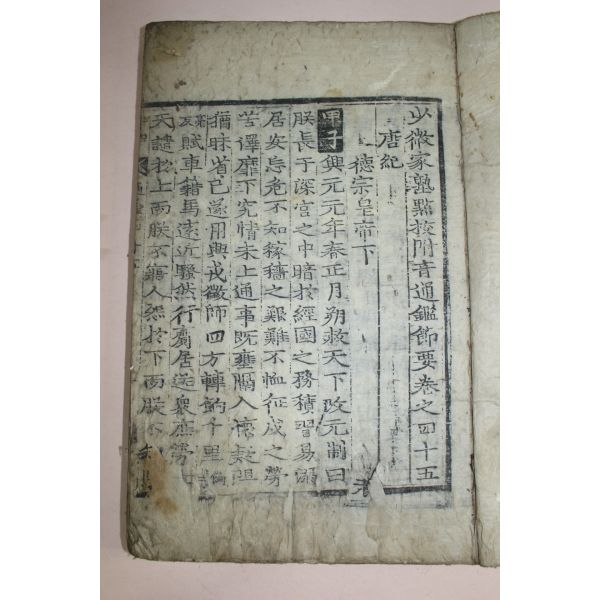 少微家塾點校附音通鑑節要卷之四十五
唐紀
德宗皇帝下
甲子興元元年春正月朔赦天下改元制曰
朕長于深宮之中暗於經國之務積習易溺
居安忘危不知稼穡之艱難不恤征戍之勞
苦澤靡下究情未上通事旣壅隔人懷疑阻
猶昧省己遂用興戎徵師四方轉餉千里
賦車籍馬遠近騷然行齎居送衆庶勞
天譴於上而朕不寤人怨於下而朕不